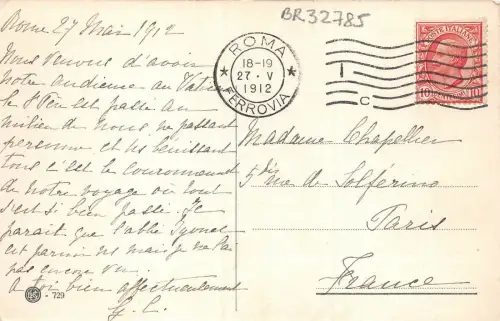 Rome 27 Mai 1912
Nous venons d'avoir
notre audience au Vatican
le St Père est passé au
milieu de nous ne passant
personne et ns bénissant
tous c'est le couronnement
de notre voyage où tout
s'est si bien passé. Je
parait que l'abbé
est parmi ns mais je ne l'ai
pas encore vu.
A toi bien affectueusement
G. L.
729
BR32785
ROMA
18-19
27 · V
1912
FERROVIA
POSTE ITALIANE
10 10
Madame Chapellier
5 bis rue de Solférino
Paris
France